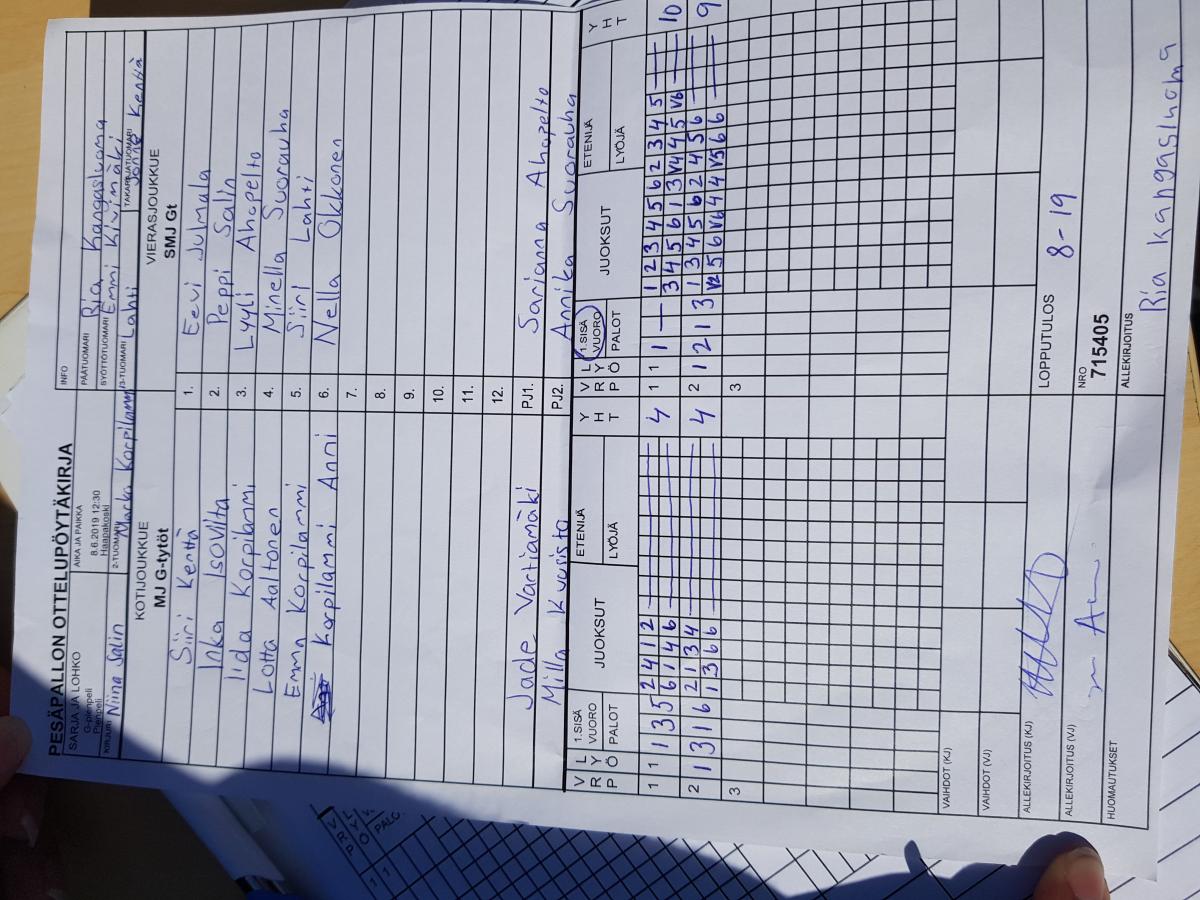 PESÄPALLON OTTELUPÖYTÄKIRJA
SARJA JA LOHKO
G-pienpeli
Pienpeli
AIKA JA PAIKKA
8.6.2019 12:30
Haapakoski
INFO
PÄÄTUOMARI Ria Kangasluoma
SYÖTTÖTUOMARI Emmi Kivimäki
KIRJURI Niina Salin
2-TUOMARI Marko Korpilammi
3-TUOMARI Lahti
TAKARAJATUOMARI Kenttä
KOTIJOUKKUE
MJ G-tytöt
VIERASJOUKKUE
SMJ Gt
Siiri Kenttä 1. Eevi Julmala
Inka Isoviita 2. Peppi Salin
Iida Korpilammi 3. Lyyli Ahopelto
Lotta Aaltonen 4. Minella Suorauha
Emma Korpilammi 5. Siiri Lahti
Korpilammi Anni 6. Nella Okkonen
7.
8.
9.
10.
11.
12.
Jade Vartiamäki PJ1. Sarianna Ahopelto
Milla Kuusisto PJ2. Annika Suorauha
V R P L Y Ö 1.SISÄ VUORO PALOT JUOKSUT ETENIJÄ LYÖJÄ Y H T V R P L Y Ö 1.SISÄ VUORO PALOT JUOKSUT ETENIJÄ LYÖJÄ Y H T
1 1 1 3 5 2 4 1 2 4 1 1 1 — 1 2 3 4 5 6 2 3 4 5 10
6 1 4 6 3 4 5 6 1 3 V4 4 5 V6
2 1 3 1 6 2 1 3 4 4 2 1 2 1 3 1 3 4 5 6 2 4 5 6 9
1 3 6 6 V2 5 6 V6 4 4 V5 6 6
3 3
VAIHDOT (KJ)
VAIHDOT (VJ)
ALLEKIRJOITUS (KJ)
LOPPUTULOS 8-19
ALLEKIRJOITUS (VJ)
NRO
715405
HUOMAUTUKSET
ALLEKIRJOITUS
Ria Kangasluoma